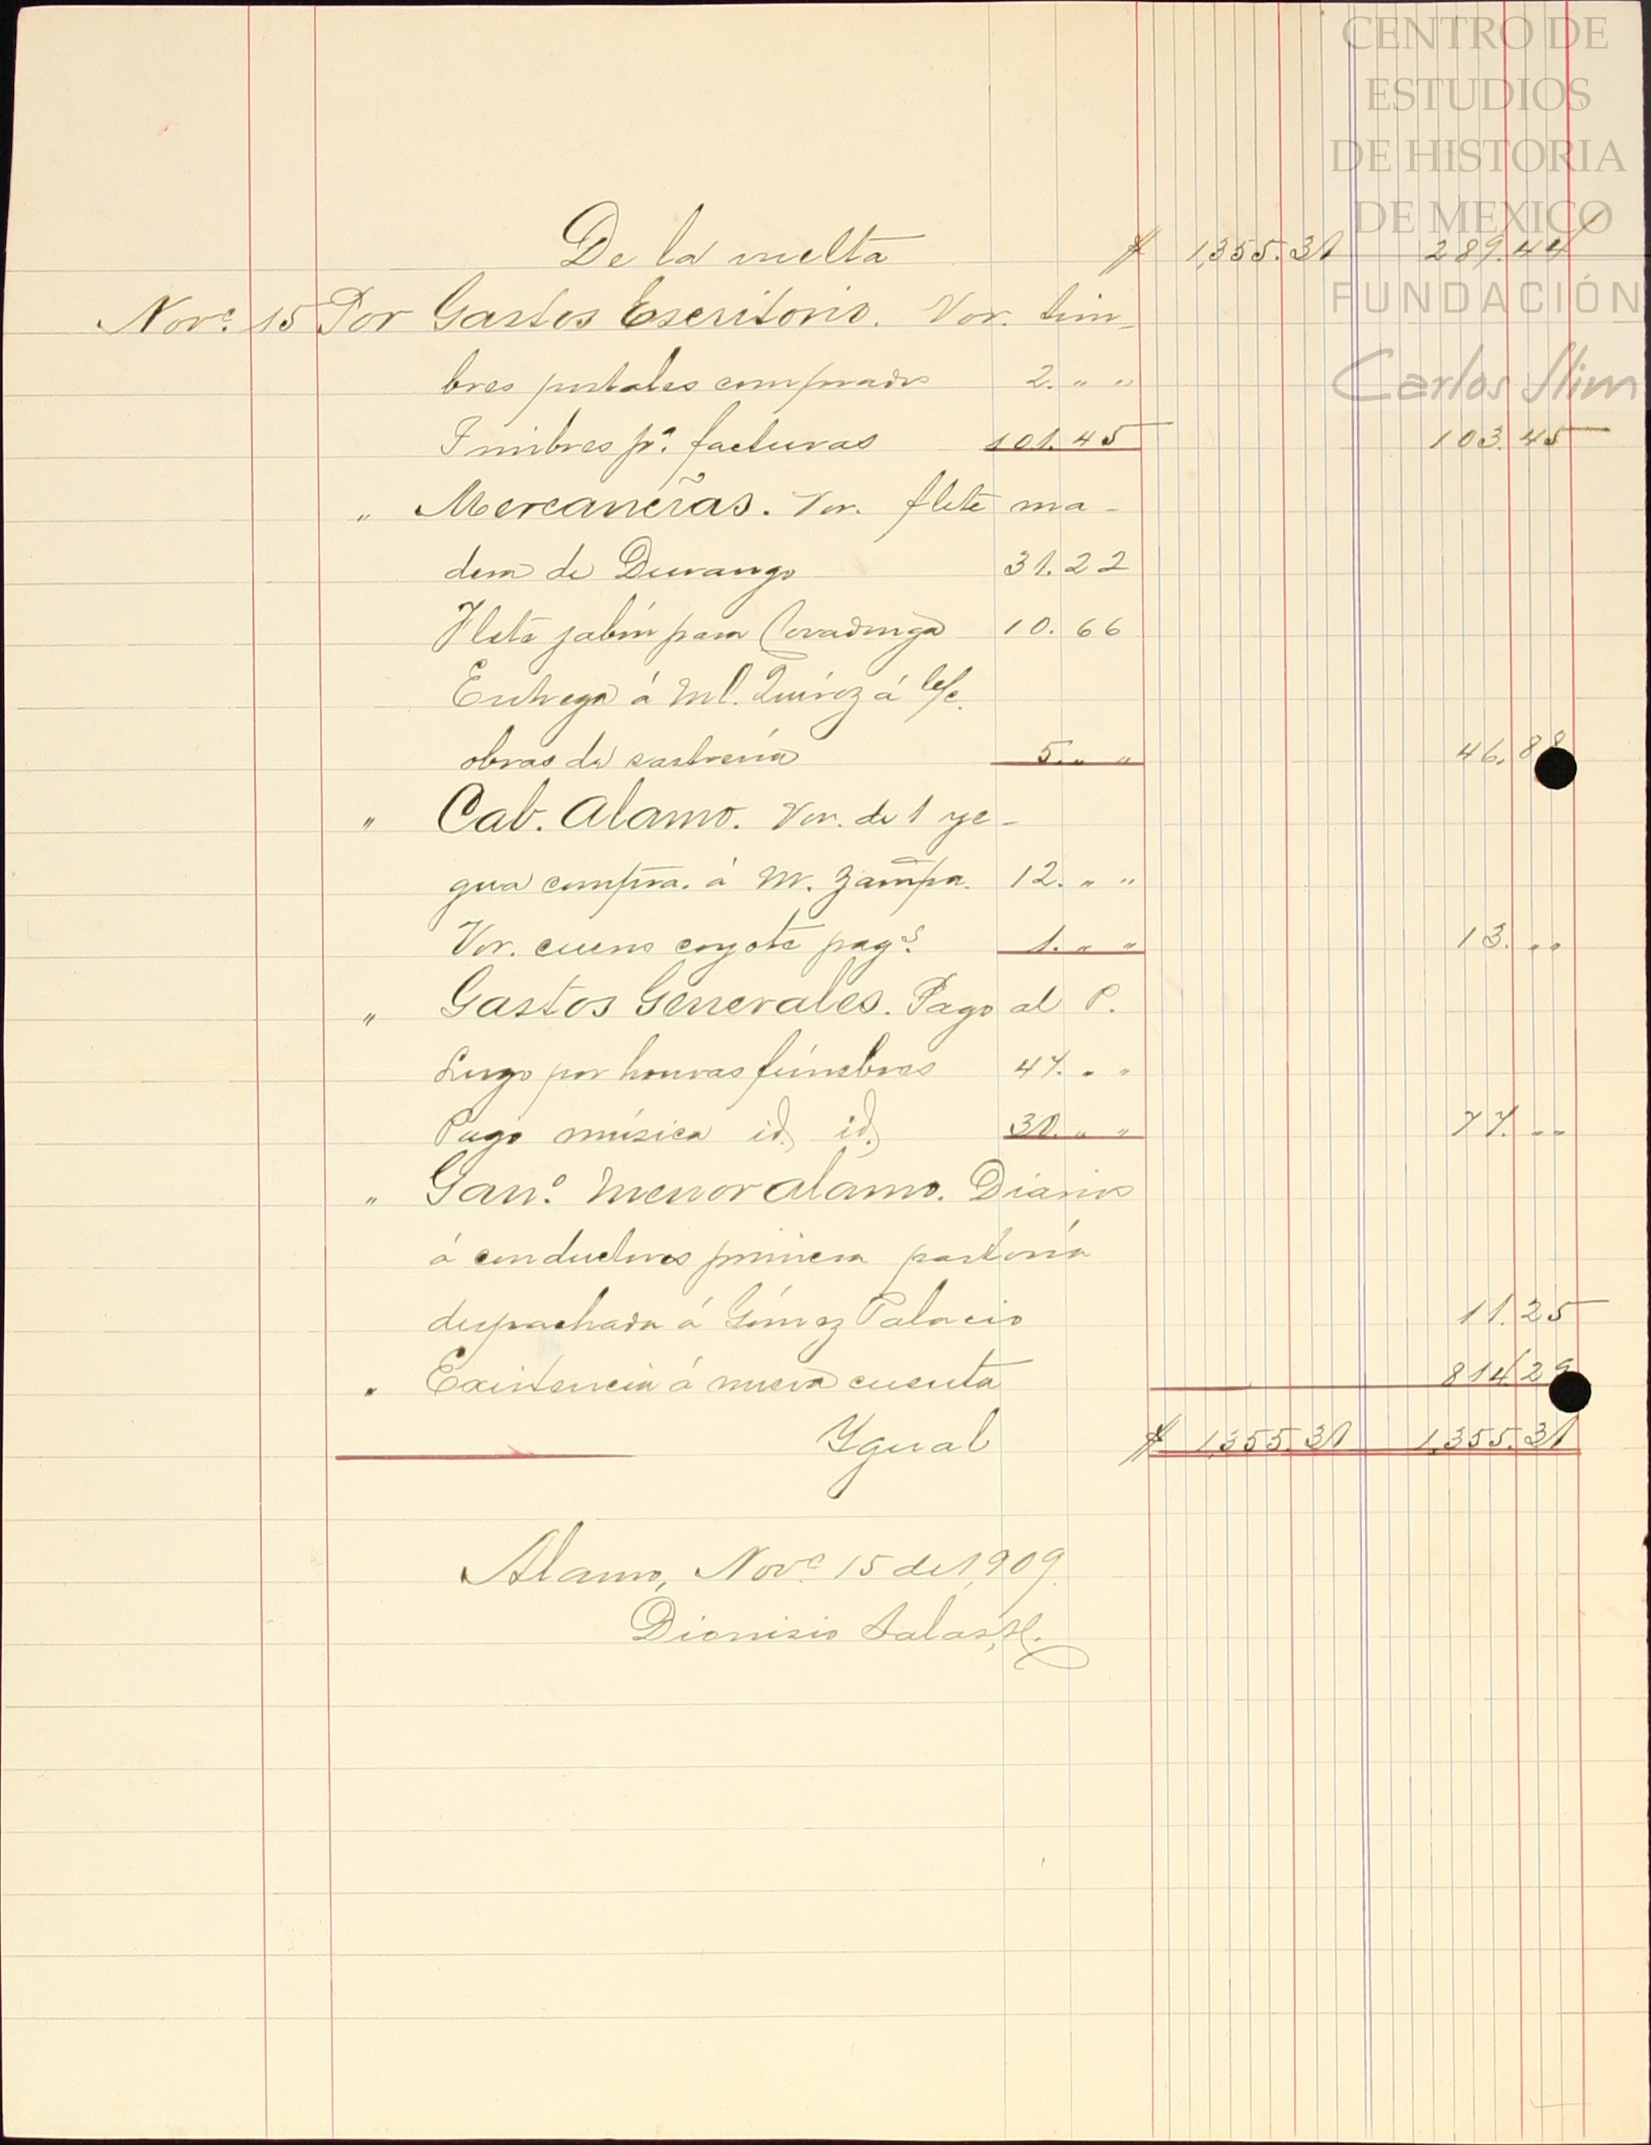 CENTRO DE
ESTUDIOS
DE HISTORIA
DE MEXICO
FUNDACIÓN
Carlos Slim
De la vuelta $ 1,355.31 289.44
Nove. 15 Por Gastos Escritorio. Vor. tim-
bres postales comprados 2. " "
Timbres pa. facturas 101.45 103.45
" Mercancías. Vor. flete ma-
dera de Durango 31.22
Flete jabón para Covadonga 10.66
Entrega á Ml. Quiroz á c/c.
obras de sastrería 5. " " 46.88
" Cab. Alamo. Vor. de 1 ye-
gua compra. á M. Zampa. 12. " "
Vor. cuero coyote pags. 1. " " 13. " "
" Gastos Generales. Pago al P.
Lugo por honras fúnebres 47. " "
Pago música id. id. 30. " " 77. " "
" Gano. Menor Alamo. Diarios
á conductores primera partería
despachada á Gómez Palacio 11.25
" Existencia á nueva cuenta 814.29
Ygual $ 1,355.31 1,355.31
Alamo, Nove. 15 de 1,909.
Dionisio Salas, H.